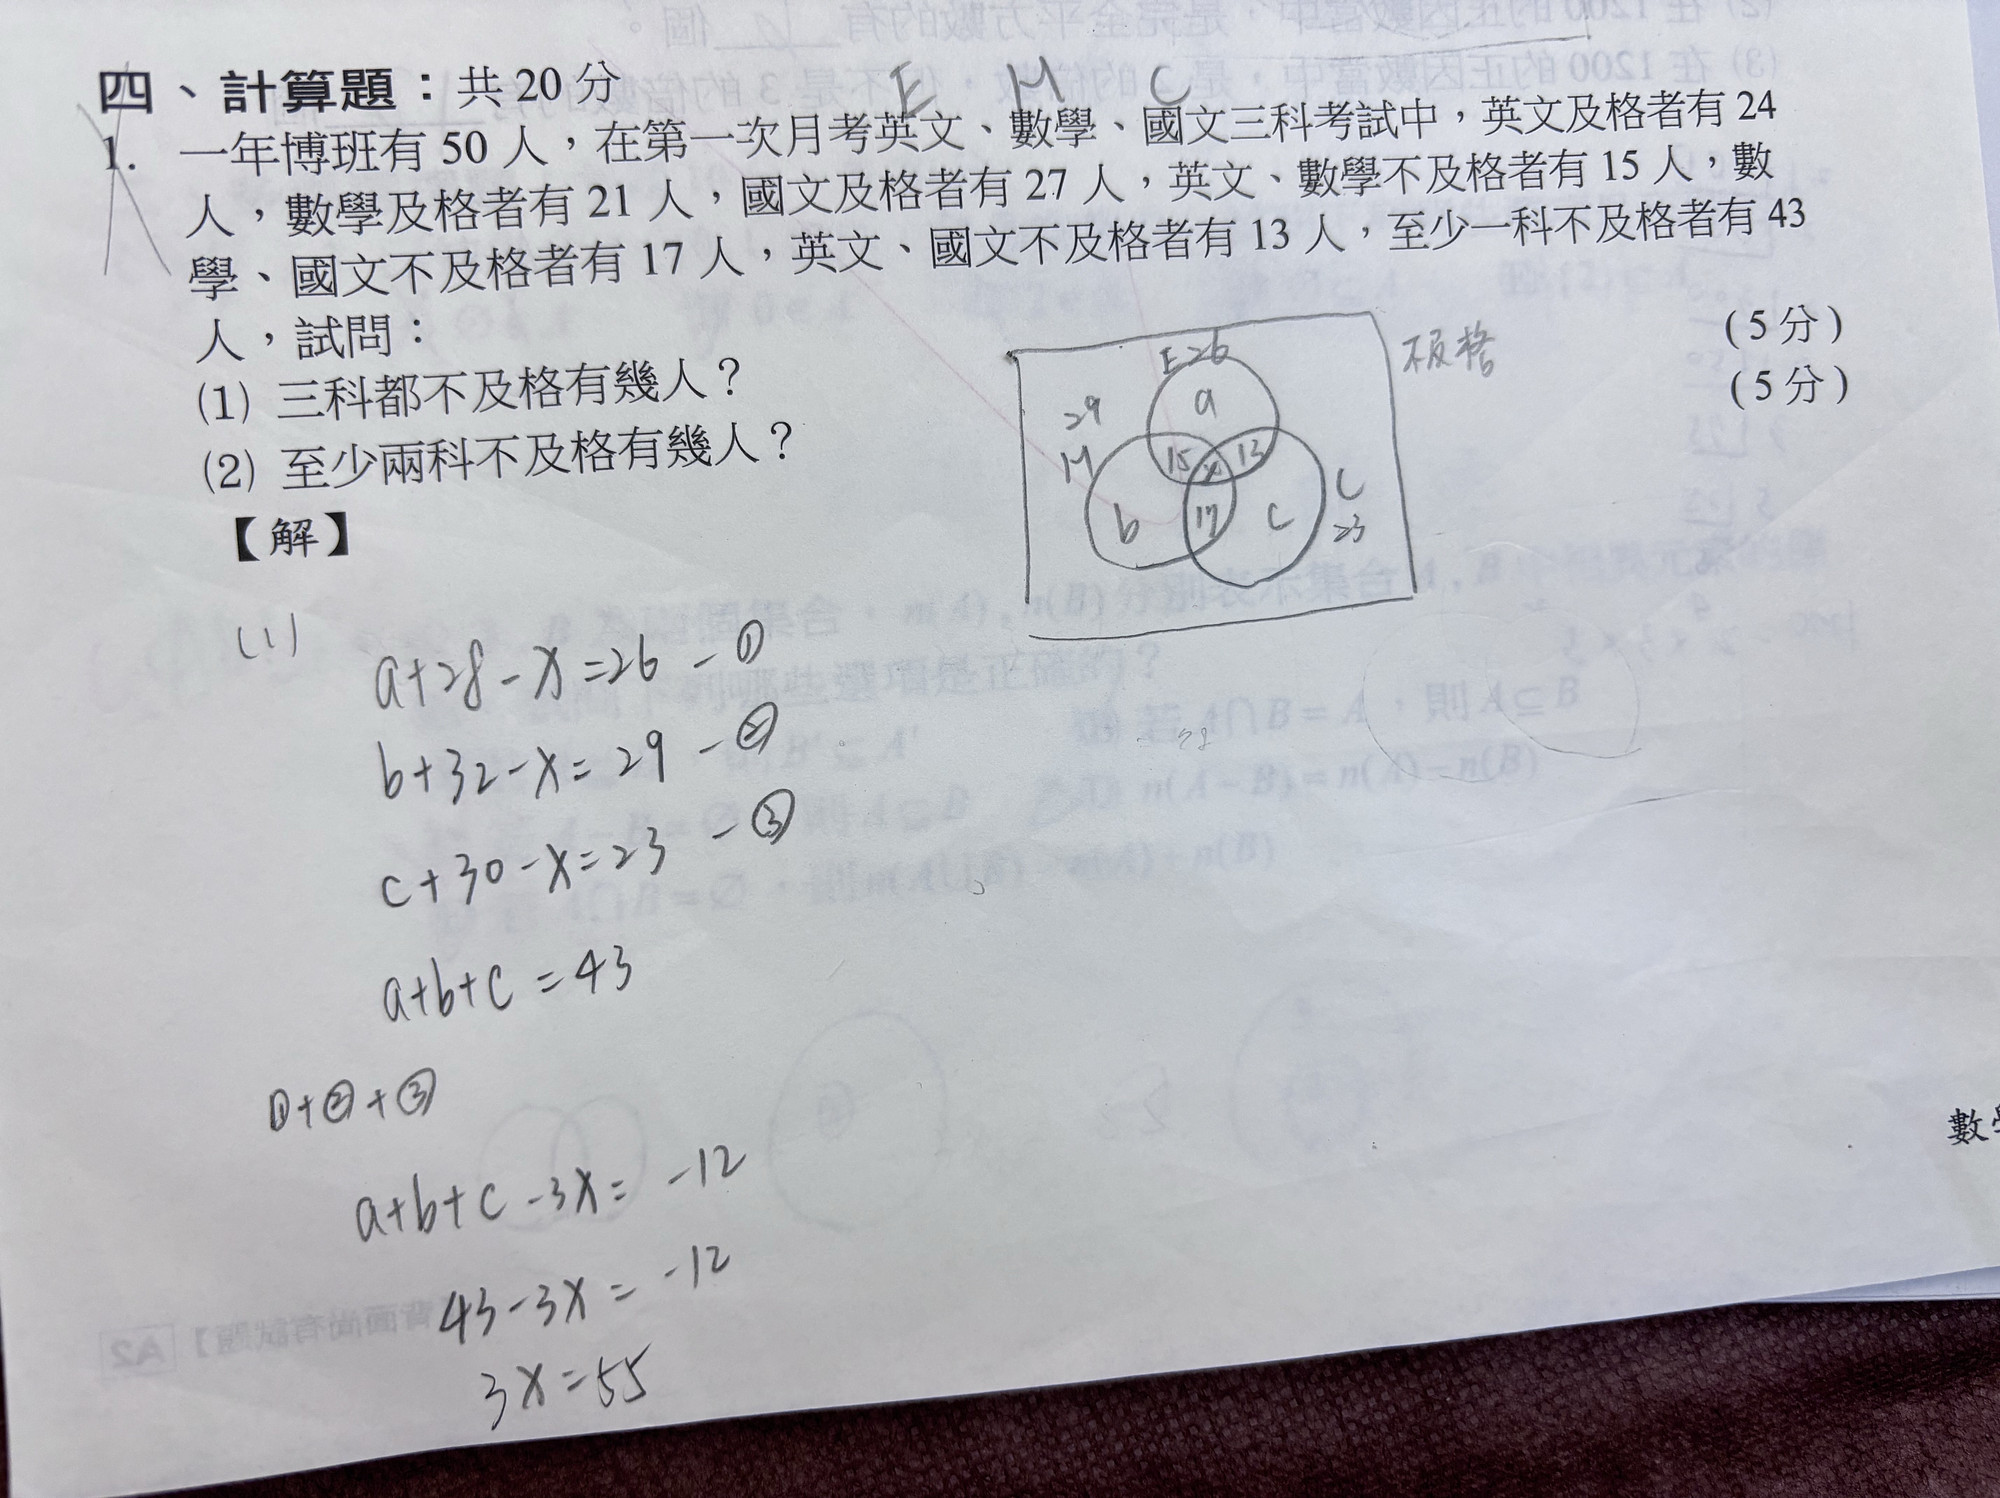 四、計算題：共 20 分
E M C
1. 一年博班有 50 人，在第一次月考英文、數學、國文三科考試中，英文及格者有 24
人，數學及格者有 21 人，國文及格者有 27 人，英文、數學不及格者有 15 人，數
學、國文不及格者有 17 人，英文、國文不及格者有 13 人，至少一科不及格者有 43
人，試問：
(1) 三科都不及格有幾人？ (5 分)
(2) 至少兩科不及格有幾人？ (5 分)
【解】
E 26
a
29
M
15 x 13
b 17 c
C
23
(1)
a+28-x=26 - ①
b+32-x=29 - ②
c+30-x=23 - ③
a+b+c=43
①+②+③
a+b+c-3x=-12
43-3x=-12
3x=55